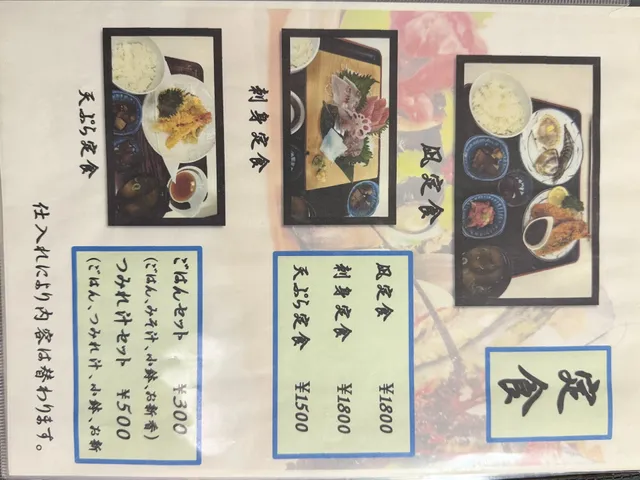 定食
凪定食
刺身定食
天ぷら定食
凪定食 ¥1800
刺身定食 ¥1800
天ぷら定食 ¥1500
ごはんセット ¥300
(ごはん、みそ汁、小鉢、お新香)
つみれ汁セット ¥500
(ごはん、つみれ汁、小鉢、お新
仕入れにより内容は替わります。